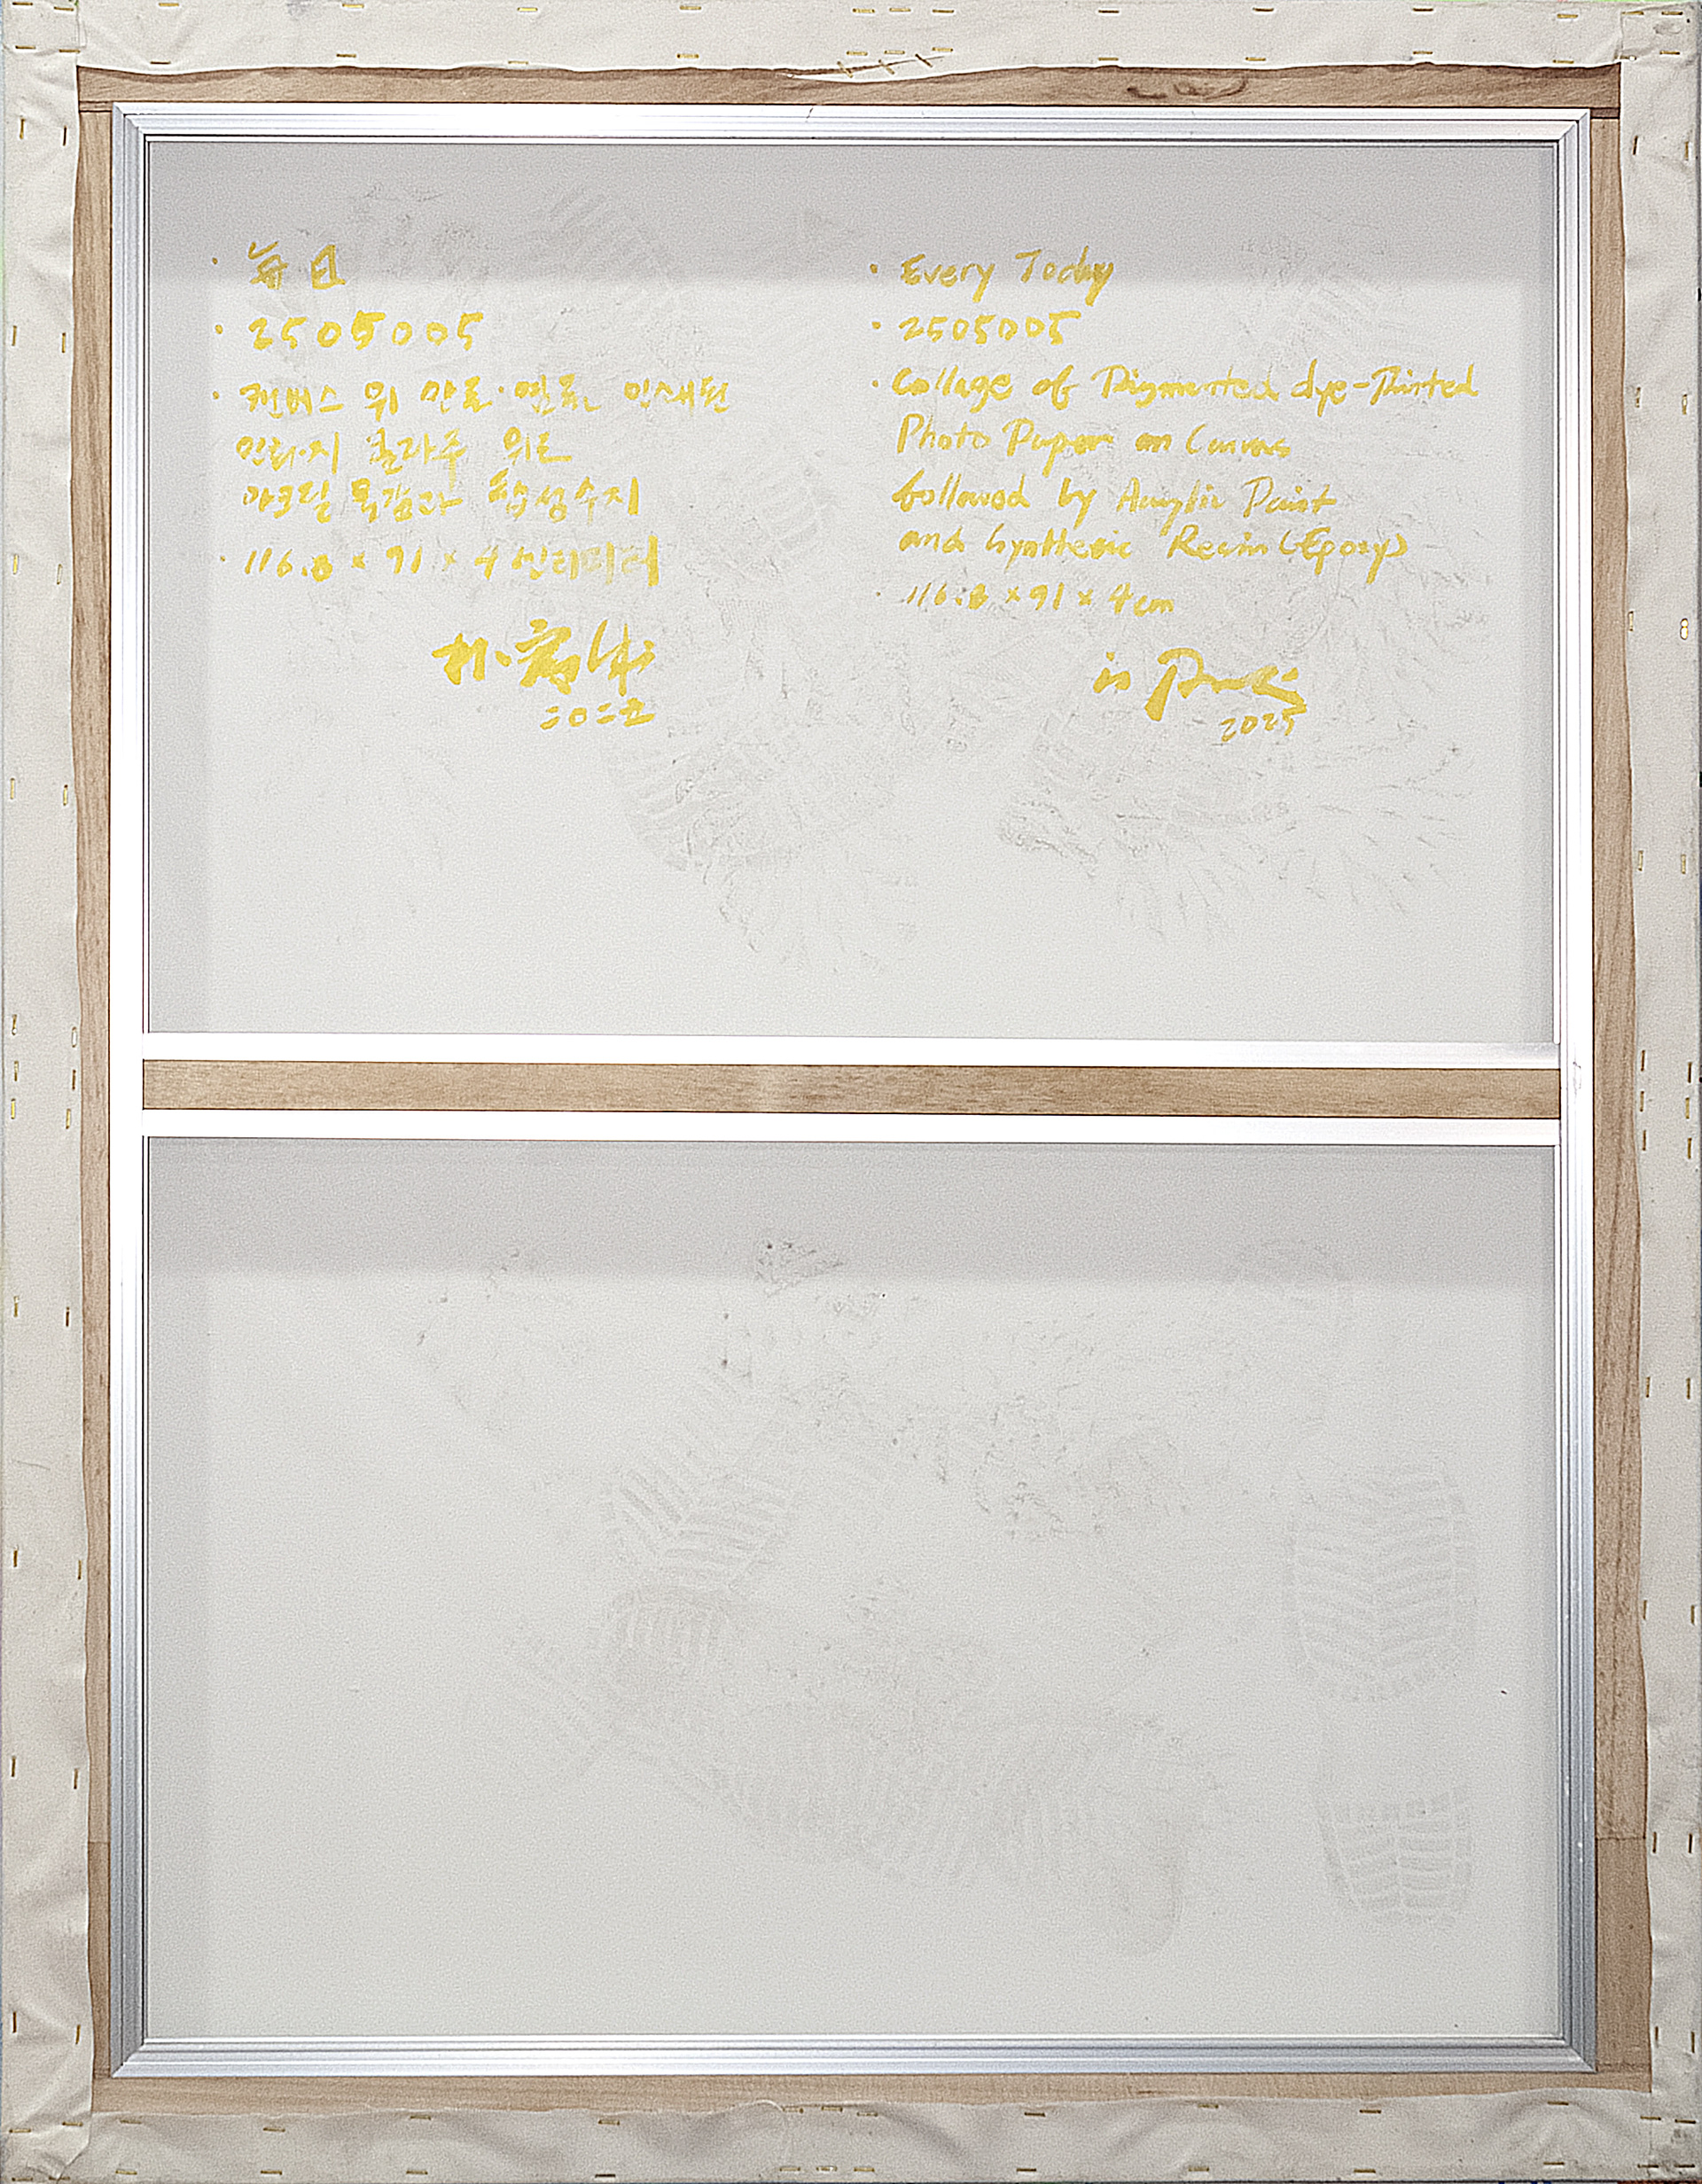 · 每日
· 2505005
· 캔버스 위 안료·염료 인쇄된
인화지 콜라주 위로
아크릴 물감과 합성수지
· 116.8 × 91 × 4 센티미터
朴
二〇二五
· Every Today
· 2505005
· Collage of Pigmented dye-Printed
Photo Paper on Canvas
followed by Acrylic Paint
and Synthetic Resin (Epoxy)
· 116.8 × 91 × 4 cm
Park
2025